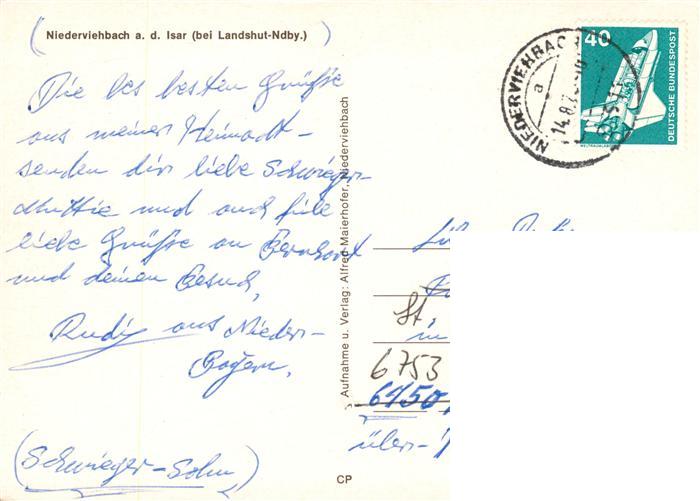 Niederviehbach a. d. Isar (bei Landshut-Ndby.)
Die bes besten Grüße
aus meiner Heimadt-
senden dir liebe Schwieger-
Muttie und auch fiele
liebe Grüße an Bernhart
und deinen Besuch,
Rudi aus Nieder-
Bayern,
(Schwieger-Sohn,)
Aufnahme u. Verlag: Alfred Maierhofer, Niederviehbach
CP
40
DEUTSCHE BUNDESPOST
WELTRAUMLABOR
NIEDERVIEHBACH
a
14.8.7
St.
in
6753
6450
über-